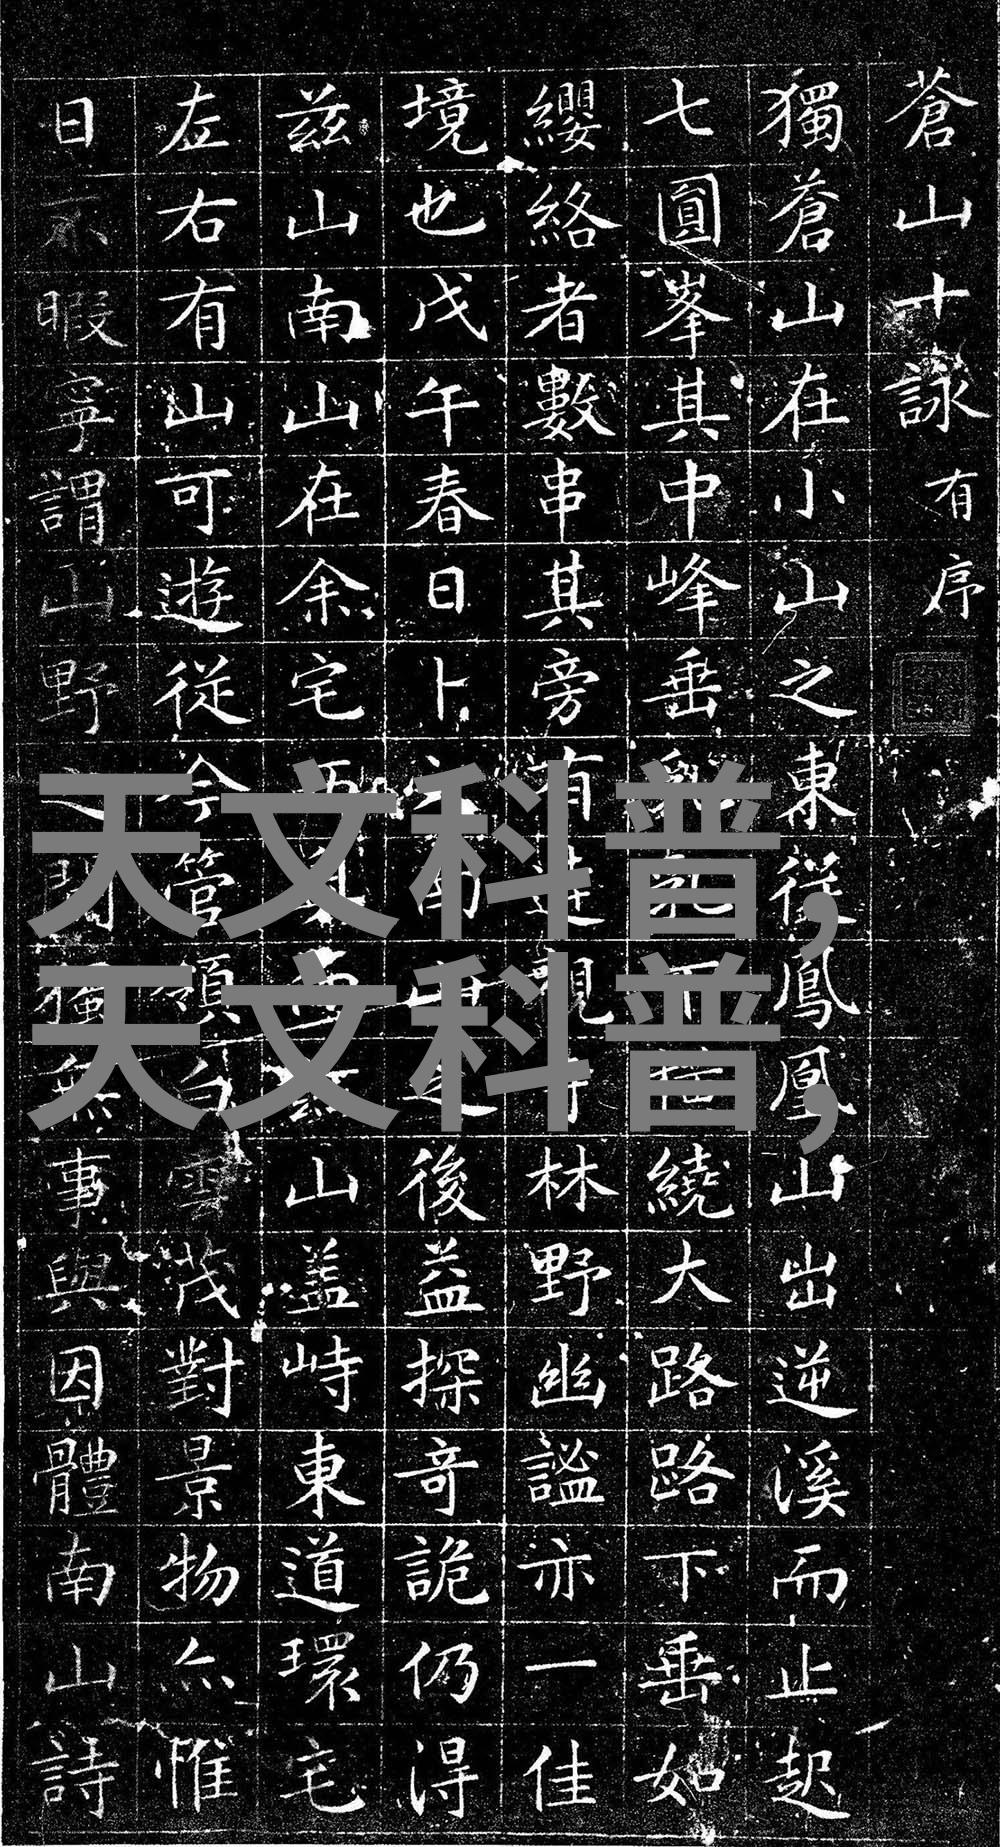 蒼山十詠 有序
獨蒼山在小山之東從鳳凰山出逆溪而止起
七圓峯其中峰垂乳下繞大路路下垂如
纓絡者數串其旁有觀寺林野幽謐亦一佳
境也戊午春日卜南之後益探奇詭仍得
茲山南山在余宅西茲山蓋峙東道環宅
左右有山可遊從今管領白雲茂對景物亦惟
日不暇寧謂山野之間獨無事與因體南山詩
天文科普,
天文科普,